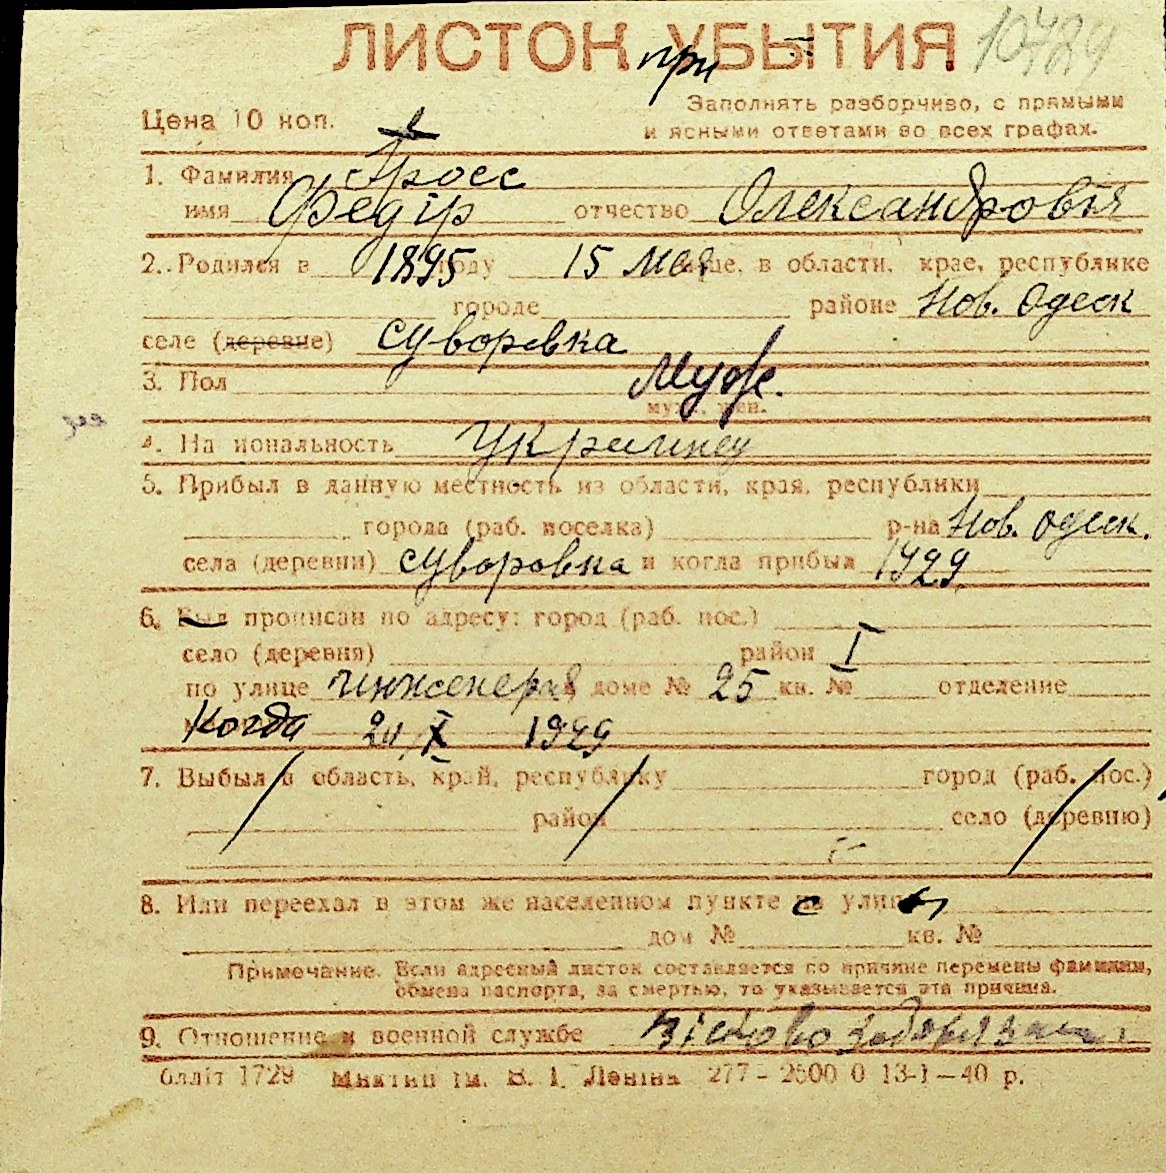 ЛИСТОК при УБЫТИЯ
Цена 10 коп.
Заполнять разборчиво, с прямыми
и ясными ответами во всех графах.
1. Фамилия Гросс
имя Федір отчество Олександровія
2. Родился в 1895 году 15 мая в области, крае, республике
городе районе Нов. Одеск
селе (деревне) Суворовка
3. Пол Муж.
муж., жен.
4. Национальность Украинец
5. Прибыл в данную местность из области, края, республики
города (раб. поселка) р-на Нов. Одеск.
села (деревни) Суворовка и когда прибыл 1929
6. Был прописан по адресу: город (раб. пос.)
село (деревня) район I
по улице Инженерная доме № 25 кв. № отделение
Когда X
7. Выбыл в область, край, республику город (раб. пос.)
район село (деревню)
8. Или переехал в этом же населенном пункте с улицы
дом № кв. №
Примечание. Если адресный листок составляется по причине перемены фамилии,
обмена паспорта, за смертью, то указывается эта причина.
9. Отношение к военной службе
блліт 1729 Миктип ім. В. І. Леніна 277 - 2500 0 13-1-40 р.